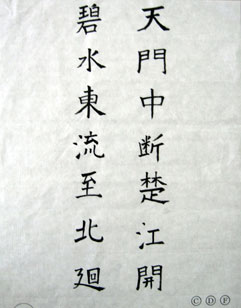 天門中断楚江開
碧水東流至北廻
ⒸⒹⒻ